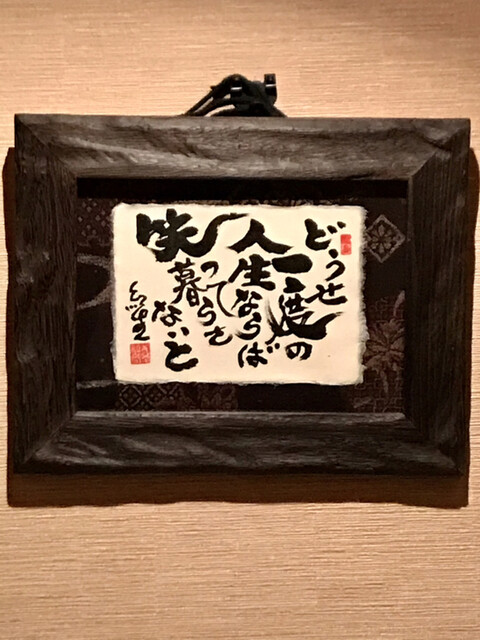 どうせ
一度の
人生ならば
咲って
暮らさ
ないと